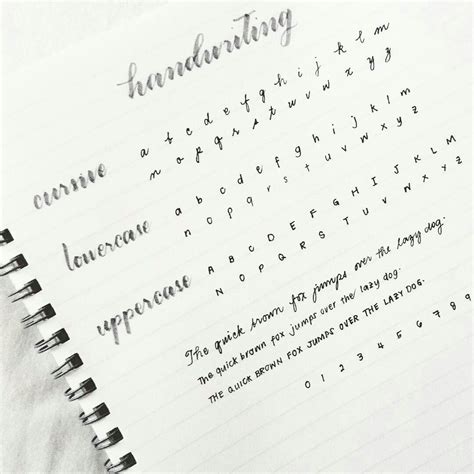 handwriting
cursive
a b c d e f g h i j k l m
n o p q r s t u v w x y z
lowercase
a b c d e f g h i j k l m
n o p q r s t u v w x y z
uppercase
A B C D E F G H I J K L M
N O P Q R S T U V W X Y Z
The quick brown fox jumps over the lazy dog.
The quick brown fox jumps over the lazy dog.
THE QUICK BROWN FOX JUMPS OVER THE LAZY DOG.
0 1 2 3 4 5 6 7 8 9